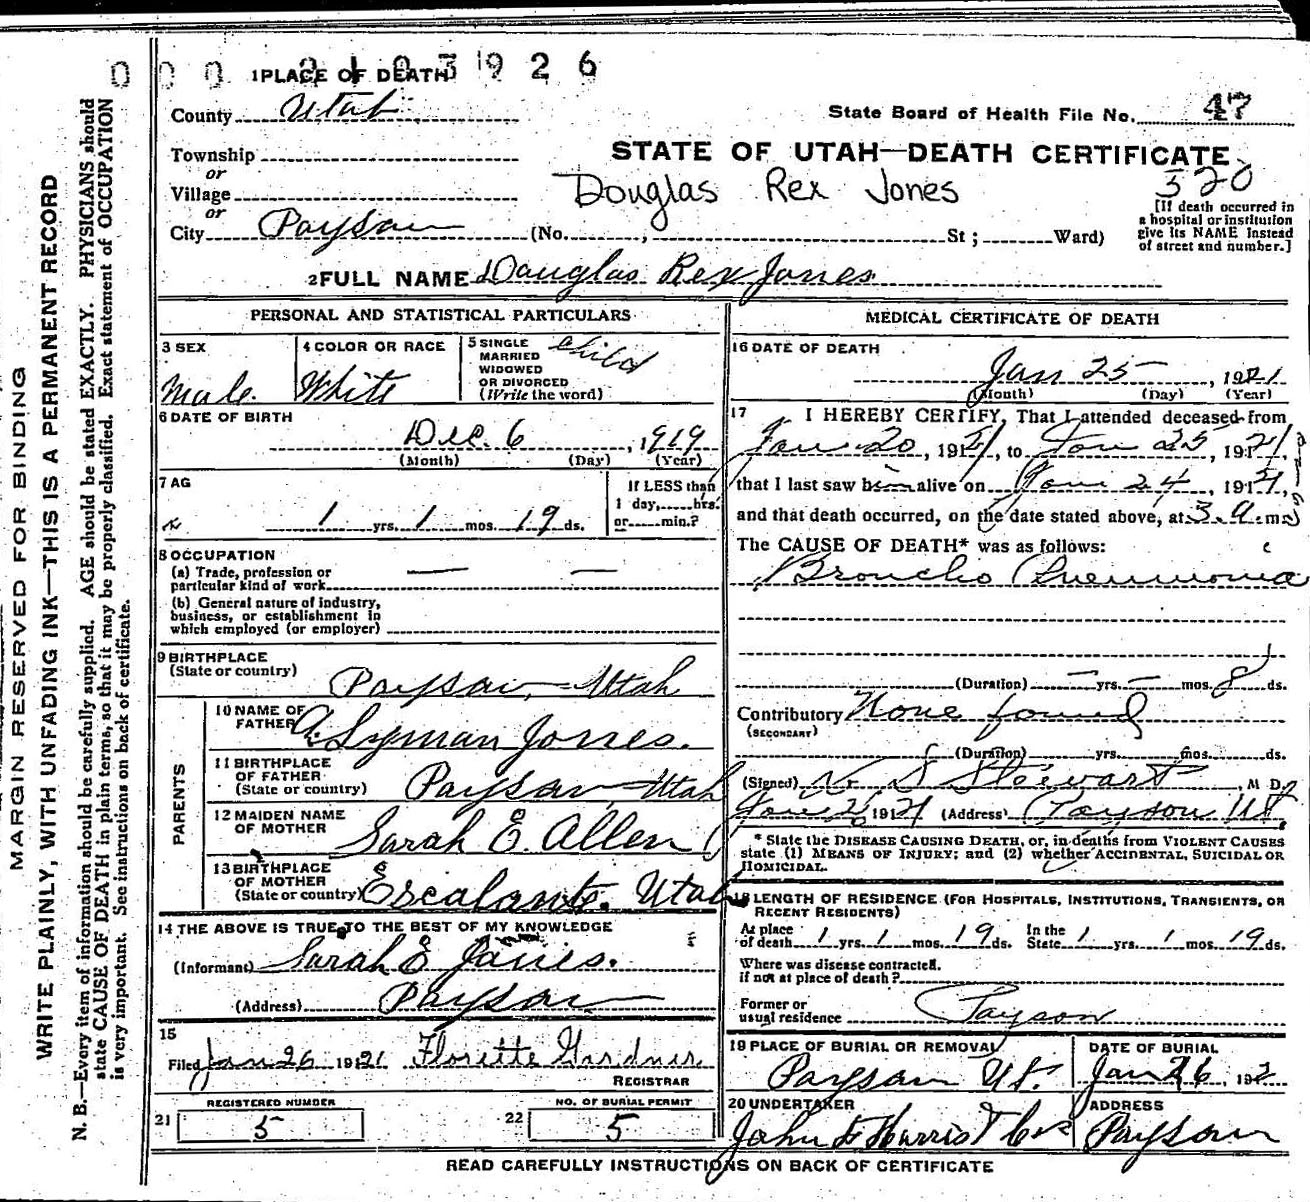 0 0 0 2 1 0 3 9 2 6
1 PLACE OF DEATH
County Utah
State Board of Health File No. 47
Township
or
Village
or
City Payson (No. , St ; Ward)
STATE OF UTAH—DEATH CERTIFICATE
320
Douglas Rex Jones
[If death occurred in
a hospital or institution
give its NAME instead
of street and number.]
2 FULL NAME Douglas Rex Jones
PERSONAL AND STATISTICAL PARTICULARS
3 SEX
Male.
4 COLOR OR RACE
White
5 SINGLE
MARRIED
WIDOWED
OR DIVORCED
(Write the word)
child
6 DATE OF BIRTH
Dec. 6, 1919
(Month) (Day) (Year)
7 AG
1 yrs. 1 mos. 19 ds.
If LESS than
1 day, hrs.
or min.?
8 OCCUPATION
(a) Trade, profession or
particular kind of work — —
(b) General nature of industry,
business, or establishment in
which employed (or employer)
9 BIRTHPLACE
(State or country)
Payson, Utah
PARENTS
10 NAME OF
FATHER A. Lyman Jones.
11 BIRTHPLACE
OF FATHER
(State or country) Payson, Utah
12 MAIDEN NAME
OF MOTHER Sarah E. Allen
13 BIRTHPLACE
OF MOTHER
(State or country) Escalante. Utah
14 THE ABOVE IS TRUE TO THE BEST OF MY KNOWLEDGE
(Informant) Sarah E Jones.
(Address) Payson
15
Filed Jan 26 1921 Florette Gardner
REGISTRAR
REGISTERED NUMBER
21 5
NO. OF BURIAL PERMIT
22 5
MEDICAL CERTIFICATE OF DEATH
16 DATE OF DEATH
Jan 25, 1921
(Month) (Day) (Year)
17 I HEREBY CERTIFY, That I attended deceased from
Jan 20, 1921, to Jan 25, 1921,
that I last saw him alive on Jan 24, 1921,
and that death occurred, on the date stated above, at 3 a. m
The CAUSE OF DEATH* was as follows:
Broncho Pneumonia
(Duration) — yrs. — mos. 8 ds.
Contributory None found
(SECONDARY)
(Duration) yrs. mos. ds.
(Signed) Stewart, M D.
Jan 26 1921 (Address) Payson Ut.
* State the DISEASE CAUSING DEATH, or, in deaths from VIOLENT CAUSES
state (1) MEANS OF INJURY; and (2) whether ACCIDENTAL, SUICIDAL OR
HOMICIDAL.
18 LENGTH OF RESIDENCE (FOR HOSPITALS, INSTITUTIONS, TRANSIENTS, OR
RECENT RESIDENTS)
At place
of death 1 yrs. 1 mos. 19 ds.
In the
State 1 yrs. 1 mos. 19 ds.
Where was disease contracted.
if not at place of death?
Former or
usual residence Payson
19 PLACE OF BURIAL OR REMOVAL
Payson Ut.
DATE OF BURIAL
Jan 26, 192
20 UNDERTAKER
John Harris
ADDRESS
Payson
READ CAREFULLY INSTRUCTIONS ON BACK OF CERTIFICATE
MARGIN RESERVED FOR BINDING
WRITE PLAINLY, WITH UNFADING INK—THIS IS A PERMANENT RECORD
N. B.—Every item of information should be carefully supplied. AGE should be stated EXACTLY. PHYSICIANS should
state CAUSE OF DEATH in plain terms, so that it may be properly classified. Exact statement of OCCUPATION
is very important. See instructions on back of certificate.